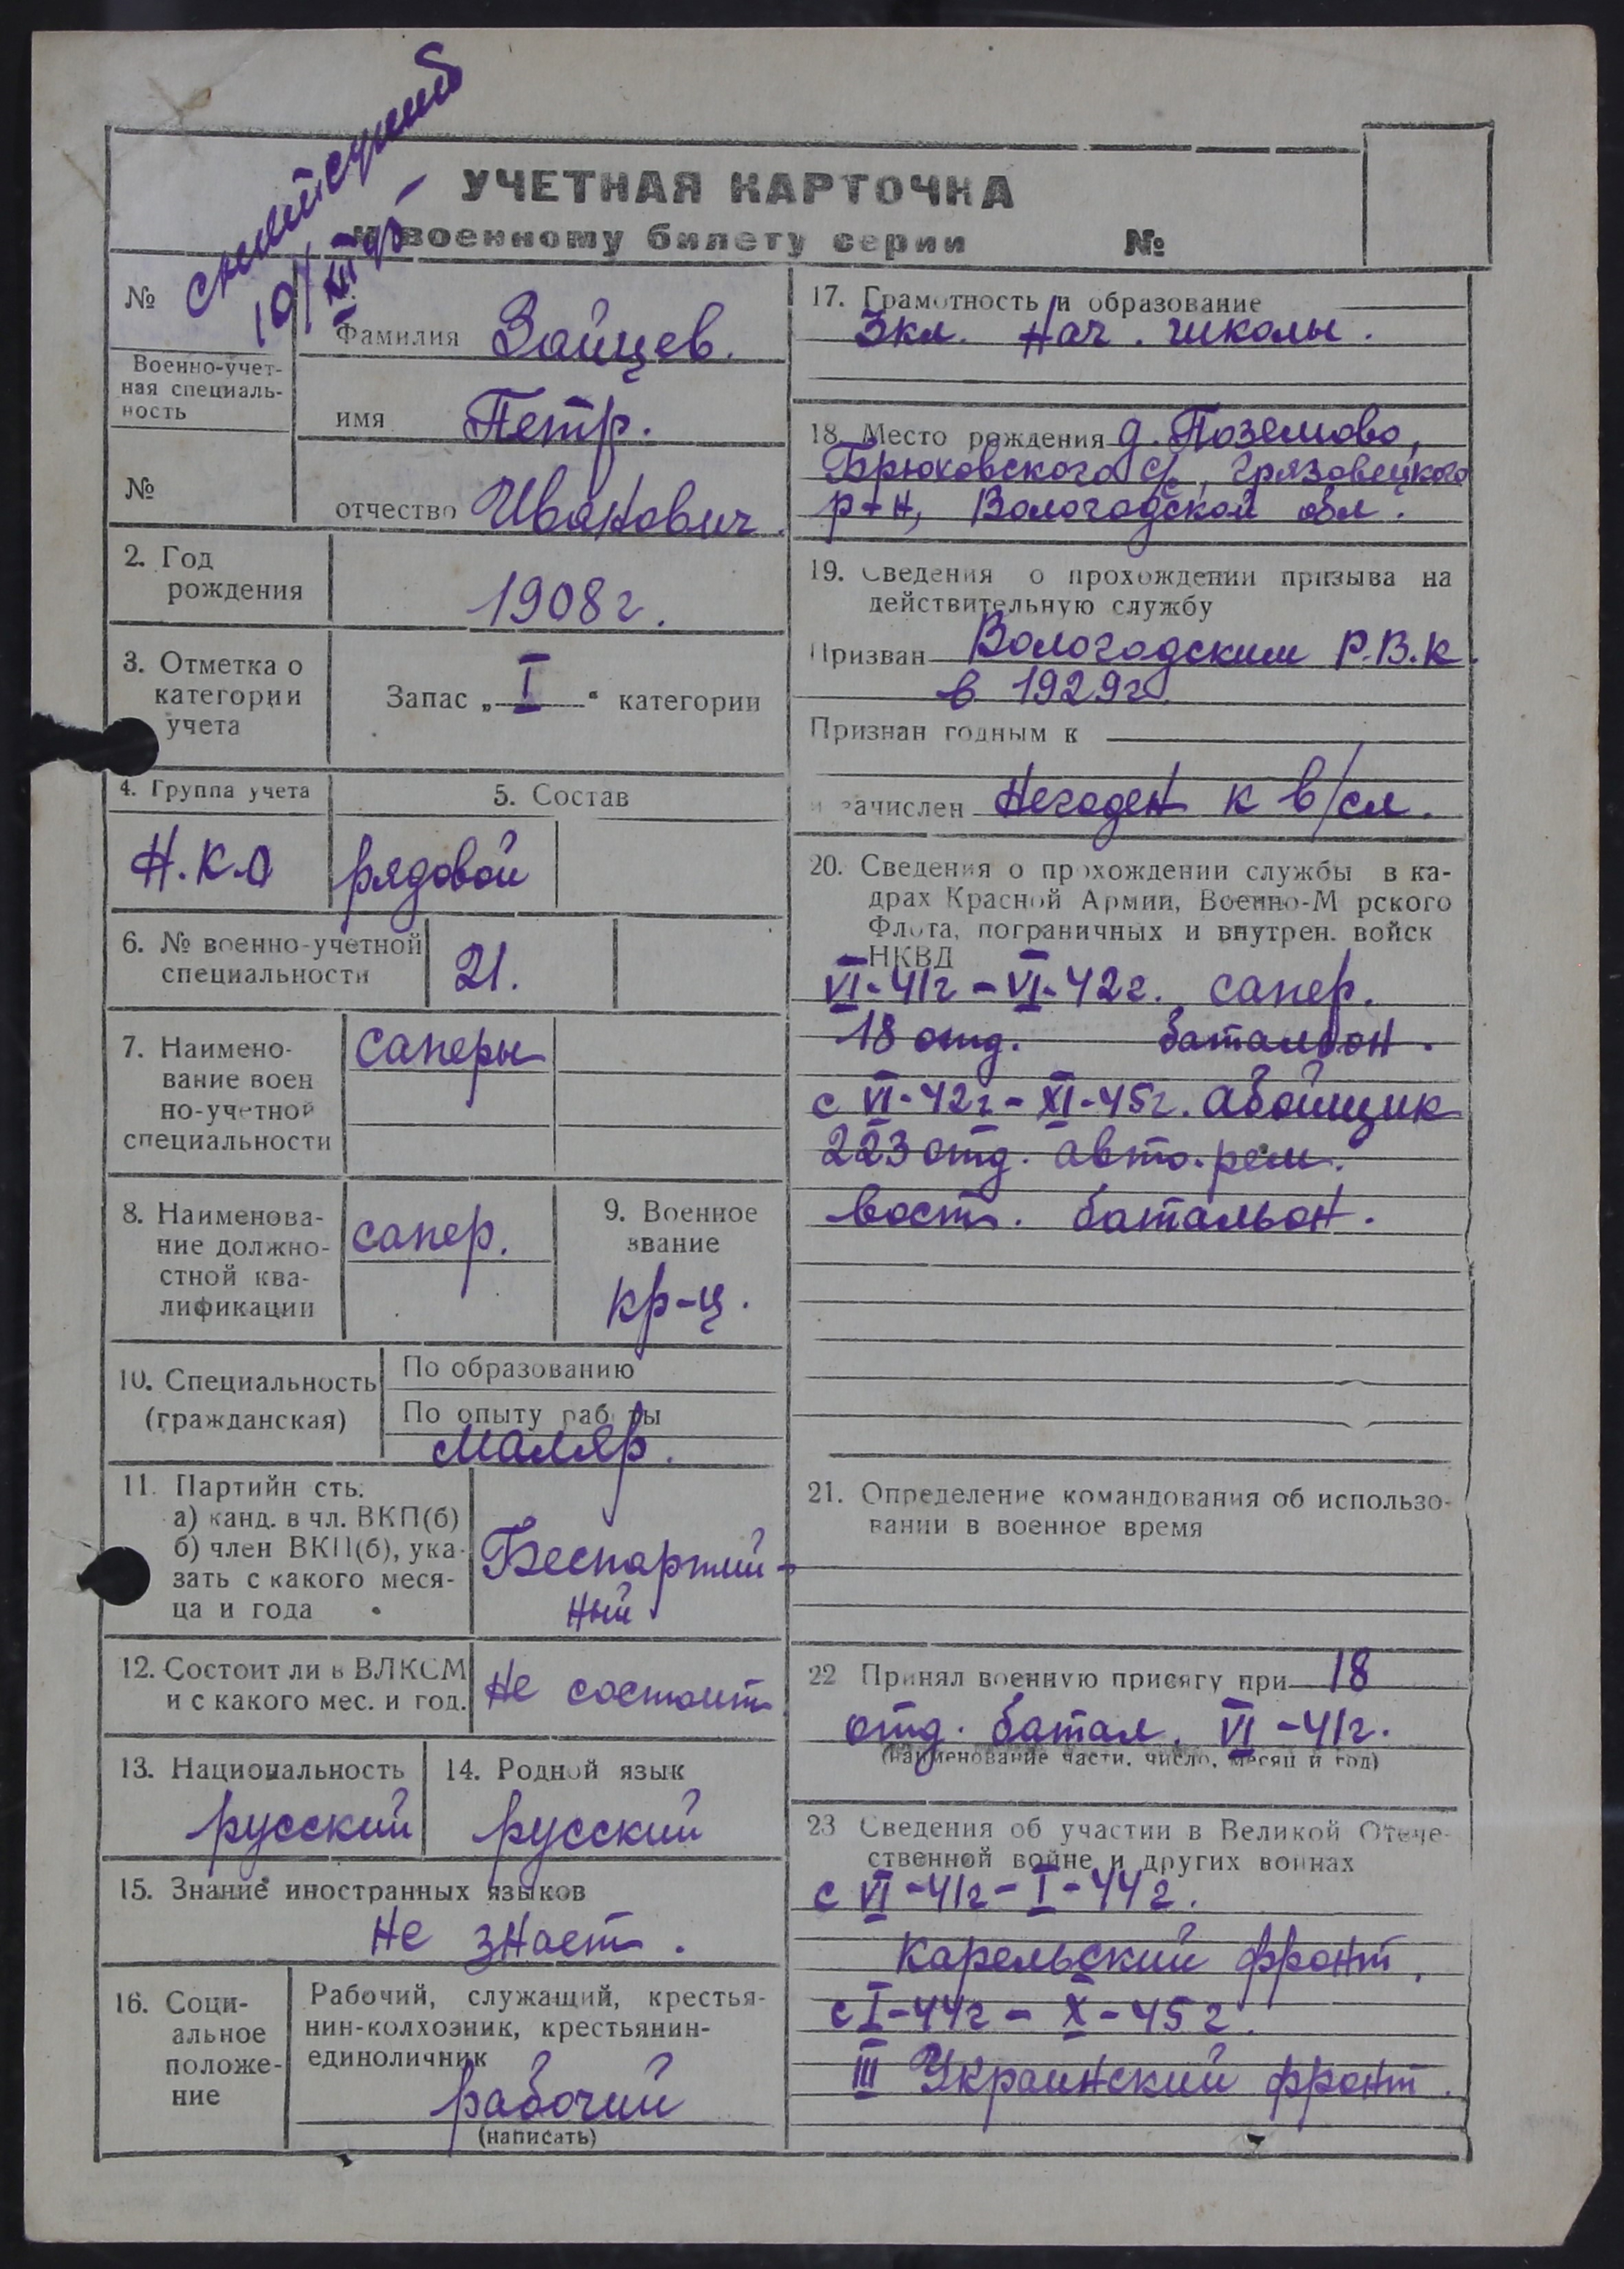 УЧЕТНАЯ КАРТОЧКА
к военному билету серии №
№
Фамилия Зайцев.
Военно-учет-
ная специаль-
ность
имя Петр.
№
отчество Иванович.
2. Год
рождения
1908 г.
3. Отметка о
категории
учета
Запас „ I “ категории
4. Группа учета
5. Состав
Н.К.О
рядовой
6. № военно-учетной
специальности
21.
7. Наимено-
вание воен
но-учетной
специальности
саперы
8. Наименова-
ние должно-
стной ква-
лификации
сапер.
9. Военное
звание
кр-ц.
10. Специальность
(гражданская)
По образованию
По опыту раб ты
маляр.
11. Партийн сть:
а) канд. в чл. ВКП(б)
б) член ВКП(б), ука-
зать с какого меся-
ца и года
Беспартий-
ный
12. Состоит ли в ВЛКСМ
и с какого мес. и год.
Не состоит
13. Национальность
русский
14. Родной язык
русский
15. Знание иностранных языков
Не знает.
16. Соци-
альное
положе-
ние
Рабочий, служащий, крестья-
нин-колхозник, крестьянин-
единоличник
рабочий
(написать)
17. Грамотность и образование
3 кл. Нач. школы.
18. Место рождения д. Поземово,
Брюховского с/с, Грязовецкого
р-н, Вологодской обл.
19. Сведения о прохождении призыва на
действительную службу
Призван Вологодским Р.В.К.
в 1929 г.
Признан годным к
и зачислен Негоден к в/сл.
20. Сведения о прохождении службы в ка-
драх Красной Армии, Военно-М рского
Флота, пограничных и внутрен. войск
НКВД
VI-41г - VI-42г. сапер.
18 отд. батальон.
с VI-42г - XI-45г. абойщик
223 отд. авто. рем.
вост. батальон.
21. Определение командования об использо-
вании в военное время
22 Принял военную присягу при 18
отд. батал. VI-41г.
(наименование части, число, месяц и год)
23 Сведения об участии в Великой Отече-
ственной войне и других войнах
с VI-41г - I-44г.
Карельский фронт.
с I-44г - X-45г.
III Украинский фронт.